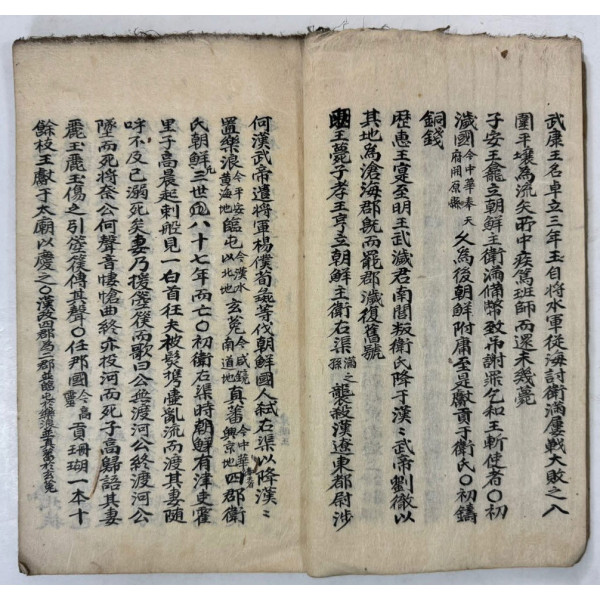 武康王名卓立三年王自將水軍從海討衛滿屢戰大敗之入
圍平壤為流矢所中疾篤班師而還未幾薨
子安王龕立朝鮮主衛滿備幣致吊謝罪乞和王斬使者〇初
濊國今中華奉天府開原縣久為後朝鮮附庸至是獻貢于衛氏〇初鑄
銅錢
歷惠王寔至明王武濊君南閭叛衛氏降于漢漢武帝劉徹以
其地為滄海郡旣而罷郡濊復舊號
王薨子孝王亨立朝鮮主衛右渠滿之孫襲殺漢遼東都尉涉
何漢武帝遣將軍楊僕荀彘等伐朝鮮國人弒右渠以降漢漢
置樂浪今平安黃海地臨屯今漢水以北地玄菟今咸鏡南道地真蕃今中華興京地四郡衛
氏朝鮮三世凡八十七年而亡〇初衛右渠時朝鮮有津吏霍
里子高晨起刺船見一白首狂夫被髮携壺亂流而渡其妻隨
呼不及已溺死矣妻乃援箜篌而歌曰公無渡河公終渡河公
墜而死將奈公何聲音悽愴曲終亦投河而死子高歸語其妻
麗玉麗玉傷之引箜篌傳其聲〇任那國今高靈貢珊瑚一本十
餘枝王獻于太廟以慶之〇漢改四郡為二郡並臨屯於樂浪並真蕃於玄菟